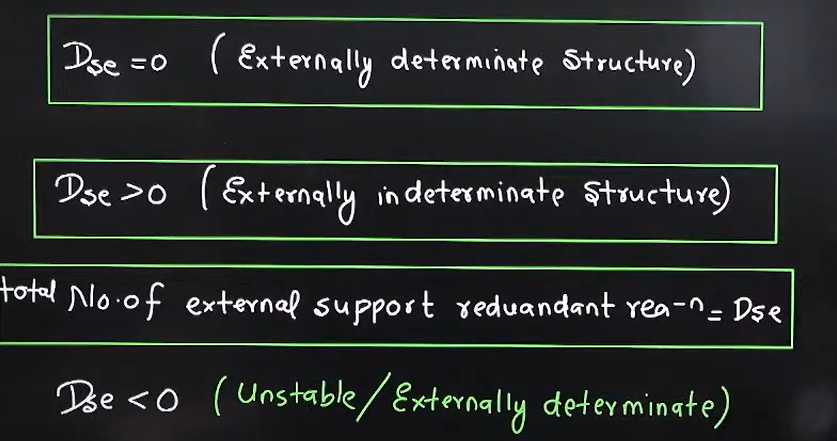 Dse = 0 (Externally determinate Structure)
Dse > 0 (Externally indeterminate Structure)
total No. of external support reduandant rea-n = Dse
Dse < 0 (Unstable/Externally determinate)